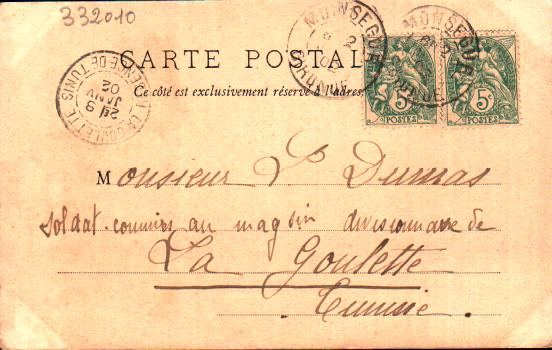 332010
CARTE POSTALE
Ce côté est exclusivement réservé à l'adresse
MONSEGUR
GIRONDE
MONSEGUR
GIRONDE
5c
POSTES
5c
POSTES
LA GOULETTE
RÉGENCE DE TUNIS
8
JANV
02
Monsieur Dumas
soldat commis au magasin divisionnaire de
La Goulette
Tunisie.